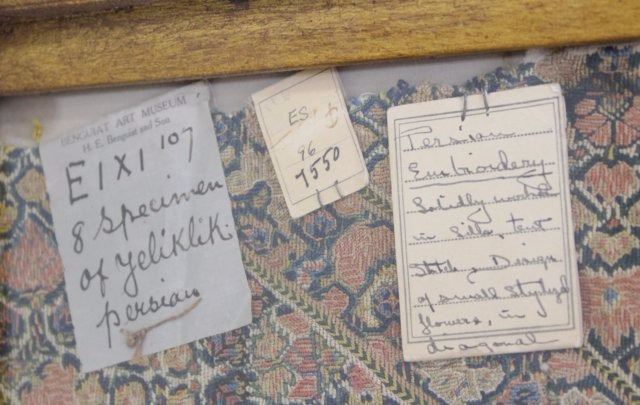 BENGUIAT ART MUSEUM
H. E. Benguiat and Son
E1X1 107
8 Specimen
of Yeliklik
persian
ES
96
7550
Persian
Embroidery
Solidly worked
in silks, tent
Stitch, Design
of small stylized
flowers, in
diagonal